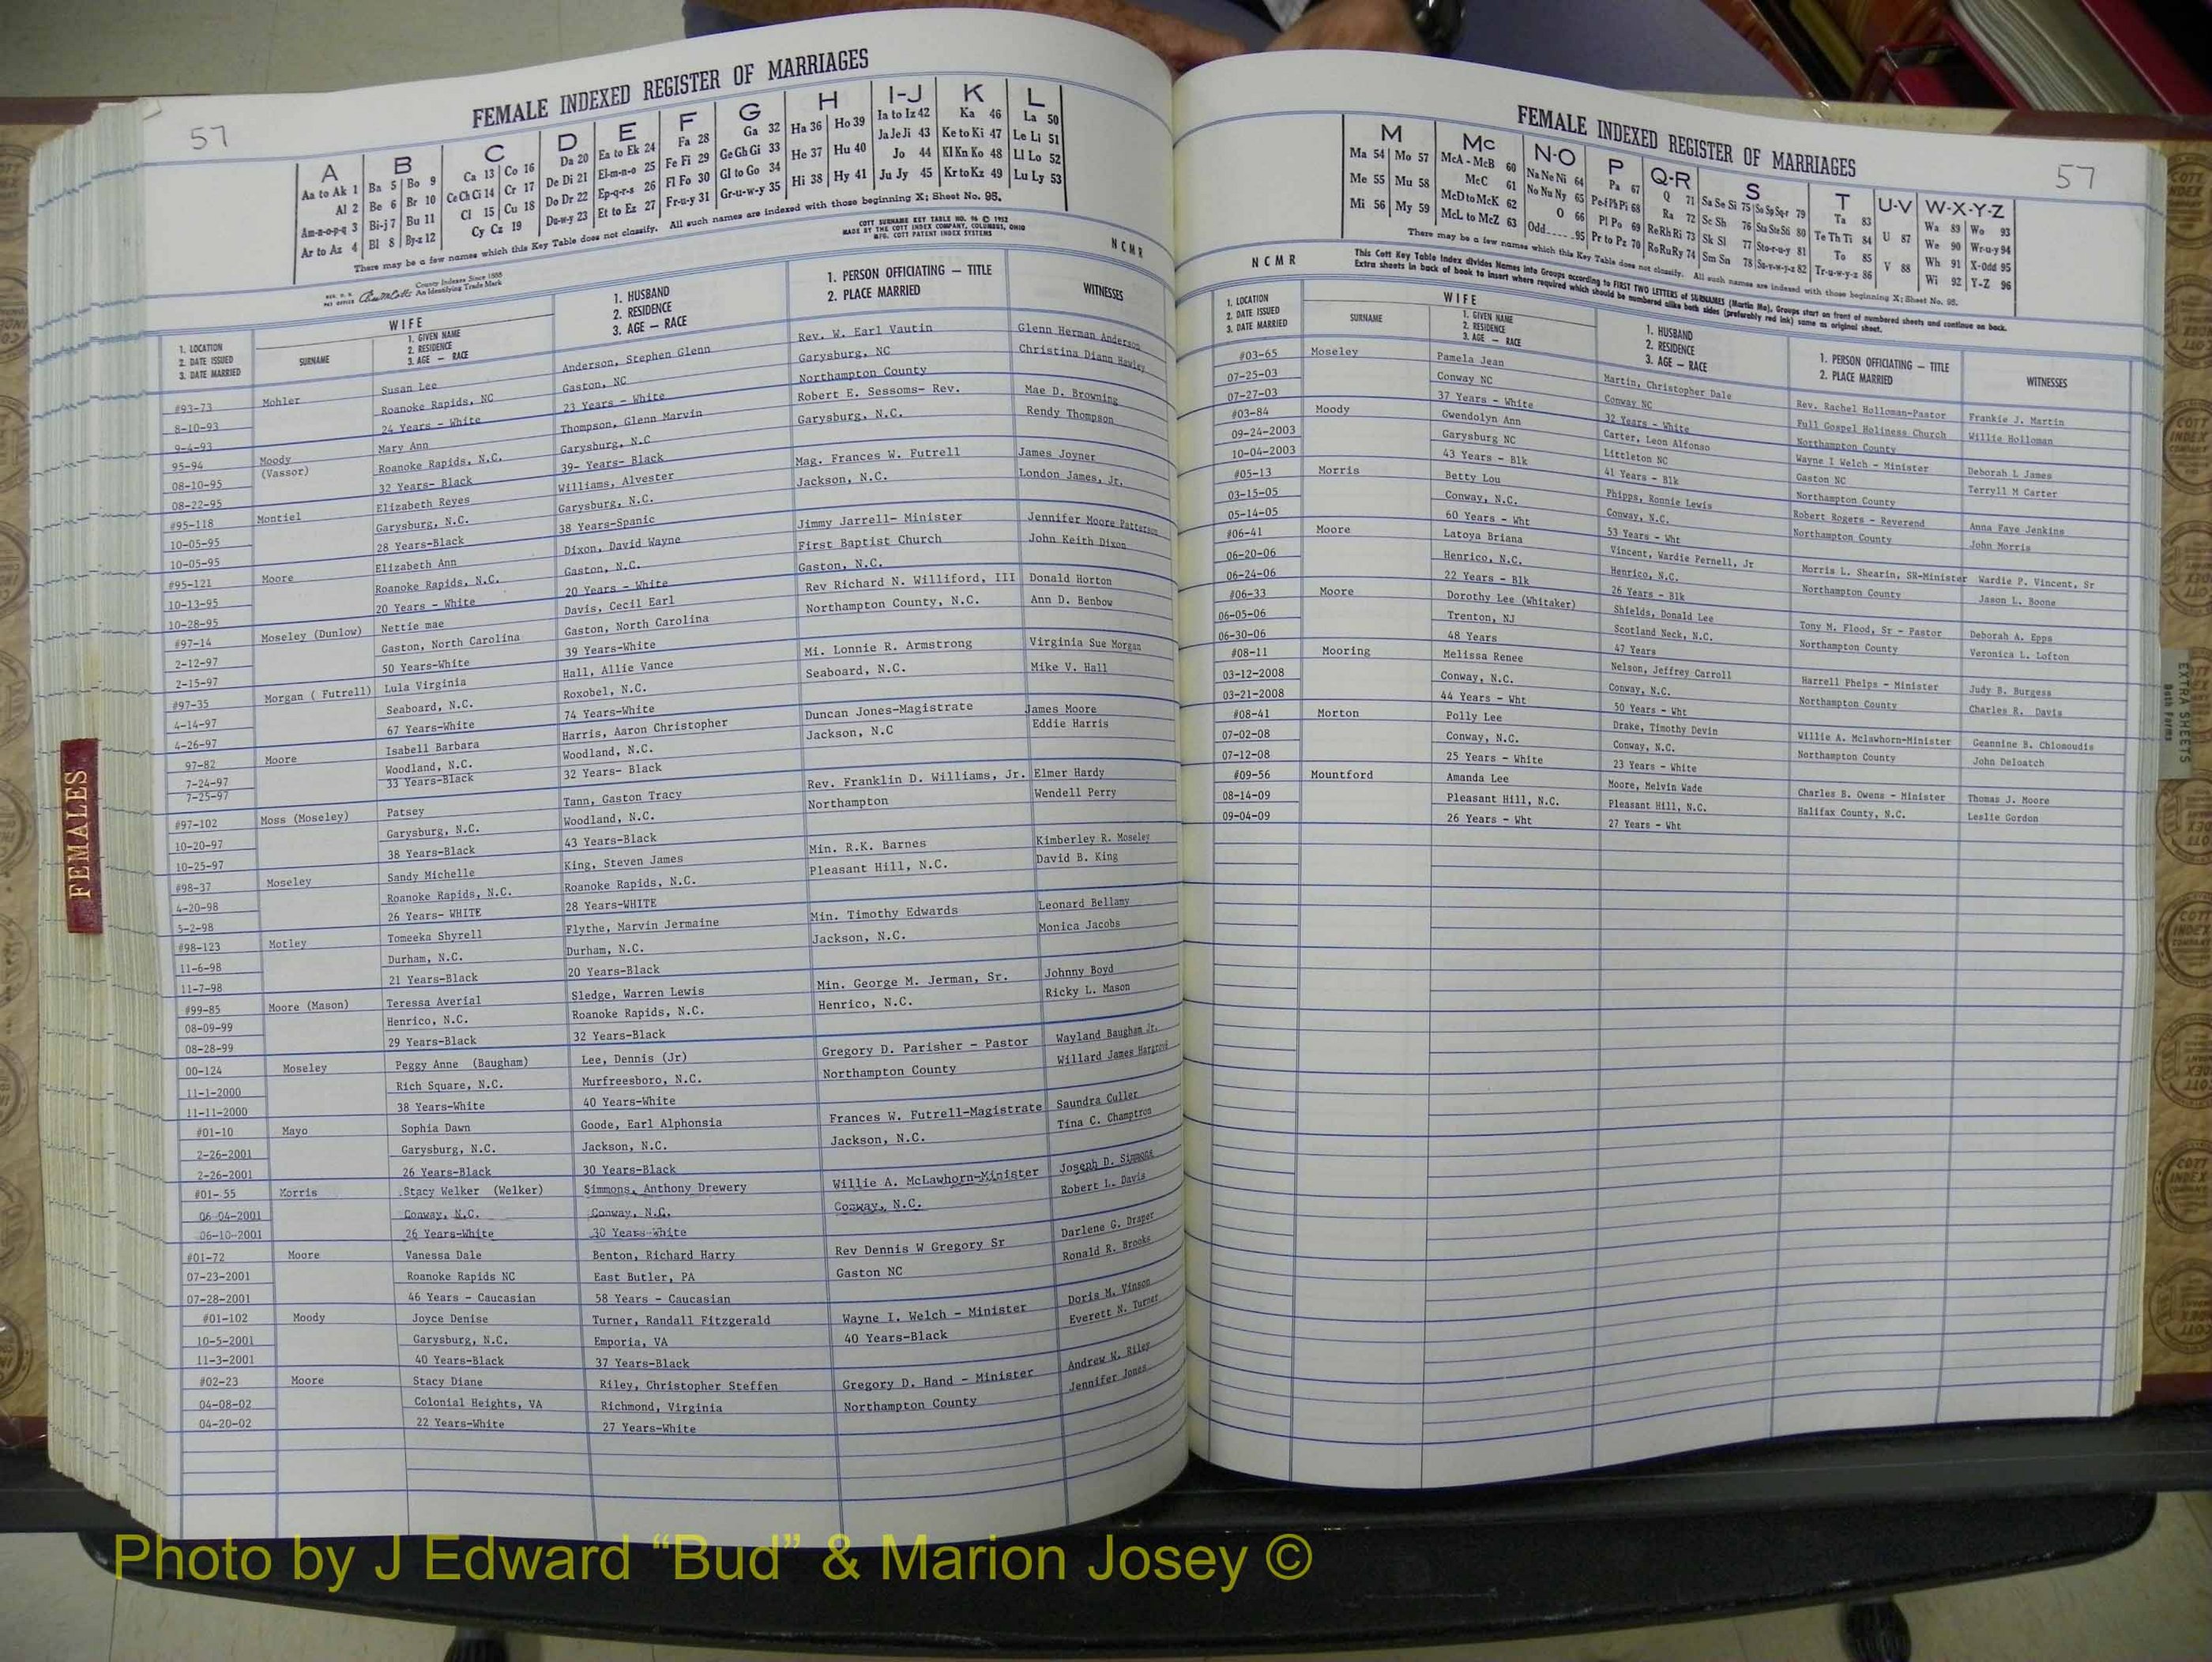 57
FEMALE INDEXED REGISTER OF MARRIAGES
A B C D E F G H I-J K L
Aa to Ak 1 Ba 5 Bo 9 Ca 13 Co 16 Da 20 Ea to Ek 24 Fa 28 Ga 32 Ha 36 Ho 39 Ia to Iz 42 Ka 46 La 50
Al 2 Be 6 Br 10 Ce Ch Ci 14 Cr 17 De Di 21 El-m-n-o 25 Fe Fi 29 Ge Gh Gi 33 He 37 Hu 40 Ja Je Ji 43 Ke to Ki 47 Le Li 51
Am-n-o-p-q 3 Bi-j 7 Bu 11 Cl 15 Cu 18 Do Dr 22 Ep-q-r-s 26 Fl Fo 30 Gl to Go 34 Hi 38 Hy 41 Jo 44 Kl Kn Ko 48 Ll Lo 52
Ar to Az 4 Bl 8 By-z 12 Cy Cz 19 Du-w-y 23 Et to Ez 27 Fr-u-y 31 Gr-u-w-y 35 Ju Jy 45 Kr to Kz 49 Lu Ly 53
There may be a few names which this Key Table does not classify. All such names are indexed with those beginning X; Sheet No. 95.
County Indexes Since 1888
An Identifying Trade Mark
COTT SURNAME KEY TABLE NO. 96 © 1952
MADE BY THE COTT INDEX COMPANY, COLUMBUS, OHIO
MFG. COTT PATENT INDEX SYSTEMS
N C M R
1. LOCATION
2. DATE ISSUED
3. DATE MARRIED
WIFE
SURNAME
1. GIVEN NAME
2. RESIDENCE
3. AGE — RACE
1. HUSBAND
2. RESIDENCE
3. AGE — RACE
1. PERSON OFFICIATING — TITLE
2. PLACE MARRIED
WITNESSES
#93-73 Mohler Susan Lee Anderson, Stephen Glenn Rev. W. Earl Vautin Glenn Herman Anderson
8-10-93 Roanoke Rapids, NC Gaston, NC Garysburg, NC Christina Diann Hawley
9-4-93 24 Years - White 23 Years - White Northampton County
95-94 Moody Mary Ann Thompson, Glenn Marvin Robert E. Sessoms- Rev. Mae D. Browning
08-10-95 (Vassor) Roanoke Rapids, N.C. Garysburg, N.C Garysburg, N.C. Rendy Thompson
08-22-95 32 Years- Black 39- Years- Black
#95-118 Montiel Elizabeth Reyes Williams, Alvester Mag. Frances W. Futrell James Joyner
10-05-95 Garysburg, N.C. Garysburg, N.C. Jackson, N.C. London James, Jr.
10-05-95 28 Years-Black 38 Years-Spanic
#95-121 Moore Elizabeth Ann Dixon, David Wayne Jimmy Jarrell- Minister Jennifer Moore Patterson
10-13-95 Roanoke Rapids, N.C. Gaston, N.C. First Baptist Church John Keith Dixon
10-28-95 20 Years - White 20 Years - White Gaston, N.C.
#97-14 Moseley (Dunlow) Nettie mae Davis, Cecil Earl Rev Richard N. Williford, III Donald Horton
2-12-97 Gaston, North Carolina Gaston, North Carolina Northampton County, N.C. Ann D. Benbow
2-15-97 50 Years-White 39 Years-White
#97-35 Morgan ( Futrell) Lula Virginia Hall, Allie Vance Mi. Lonnie R. Armstrong Virginia Sue Morgan
4-14-97 Seaboard, N.C. Roxobel, N.C. Seaboard, N.C. Mike V. Hall
4-26-97 67 Years-White 74 Years-White
97-82 Moore Isabell Barbara Harris, Aaron Christopher Duncan Jones-Magistrate James Moore
7-24-97 Woodland, N.C. Woodland, N.C. Jackson, N.C Eddie Harris
7-25-97 33 Years-Black 32 Years- Black
#97-102 Moss (Moseley) Patsey Tann, Gaston Tracy Rev. Franklin D. Williams, Jr. Elmer Hardy
10-20-97 Garysburg, N.C. Woodland, N.C. Northampton Wendell Perry
10-25-97 38 Years-Black 43 Years-Black
#98-37 Moseley Sandy Michelle King, Steven James Min. R.K. Barnes Kimberley R. Moseley
4-20-98 Roanoke Rapids, N.C. Roanoke Rapids, N.C. Pleasant Hill, N.C. David B. King
5-2-98 26 Years- WHITE 28 Years-WHITE
#98-123 Motley Tomeeka Shyrell Flythe, Marvin Jermaine Min. Timothy Edwards Leonard Bellamy
11-6-98 Durham, N.C. Durham, N.C. Jackson, N.C. Monica Jacobs
11-7-98 21 Years-Black 20 Years-Black
#99-85 Moore (Mason) Teressa Averial Sledge, Warren Lewis Min. George M. Jerman, Sr. Johnny Boyd
08-09-99 Henrico, N.C. Roanoke Rapids, N.C. Henrico, N.C. Ricky L. Mason
08-28-99 29 Years-Black 32 Years-Black
00-124 Moseley Peggy Anne (Baugham) Lee, Dennis (Jr) Gregory D. Parisher - Pastor Wayland Baugham Jr.
11-1-2000 Rich Square, N.C. Murfreesboro, N.C. Northampton County Willard James Hargrove
11-11-2000 38 Years-White 40 Years-White
#01-10 Mayo Sophia Dawn Goode, Earl Alphonsia Frances W. Futrell-Magistrate Saundra Culler
2-26-2001 Garysburg, N.C. Jackson, N.C. Jackson, N.C. Tina C. Champtron
2-26-2001 26 Years-Black 30 Years-Black
#01-55 Morris Stacy Welker (Welker) Simmons, Anthony Drewery Willie A. McLawhorn-Minister Joseph D. Simmons
06-04-2001 Conway, N.C. Conway, N.C. Conway, N.C. Robert L. Davis
06-10-2001 26 Years-White 30 Years-White
#01-72 Moore Vanessa Dale Benton, Richard Harry Rev Dennis W Gregory Sr Darlene G. Draper
07-23-2001 Roanoke Rapids NC East Butler, PA Gaston NC Ronald R. Brooks
07-28-2001 46 Years - Caucasian 58 Years - Caucasian
#01-102 Moody Joyce Denise Turner, Randall Fitzgerald Wayne I. Welch - Minister Doris M. Vinson
10-5-2001 Garysburg, N.C. Emporia, VA 40 Years-Black Everett N. Turner
11-3-2001 40 Years-Black 37 Years-Black
#02-23 Moore Stacy Diane Riley, Christopher Steffen Gregory D. Hand - Minister Andrew W. Riley
04-08-02 Colonial Heights, VA Richmond, Virginia Northampton County Jennifer Jones
04-20-02 22 Years-White 27 Years-White
FEMALES
FEMALE INDEXED REGISTER OF MARRIAGES
57
M Mc N-O P Q-R S T U-V W-X-Y-Z
Ma 54 Mo 57 McA - McB 60 Na Ne Ni 64 Pa 67 Q 71 Sa Se Si 75 So Sp Sq-r 79 Ta 83 U 87 Wa 89 Wo 93
Me 55 Mu 58 McC 61 No Nu Ny 65 Pe-f Ph Pi 68 Ra 72 Sc Sh 76 Sta Ste Sti 80 Te Th Ti 84 V 88 We 90 Wr-u-y 94
Mi 56 My 59 McD to McK 62 O 66 Pl Po 69 Re Rh Ri 73 Sk Sl 77 Sto-r-u-y 81 To 85 Wh 91 X-Odd 95
McL to McZ 63 Odd 95 Pr to Pz 70 Ro Ru Ry 74 Sm Sn 78 Su-v-w-y-z 82 Tr-u-w-y-z 86 Wi 92 Y-Z 96
There may be a few names which this Key Table does not classify. All such names are indexed with those beginning X; Sheet No. 95.
This Cott Key Table Index divides Names into Groups according to FIRST TWO LETTERS of SURNAMES (Martin Ma). Groups start on front of numbered sheets and continue on back.
Extra sheets in back of book to insert where required which should be numbered alike both sides (preferably red ink) same as original sheet.
N C M R
1. LOCATION
2. DATE ISSUED
3. DATE MARRIED
WIFE
SURNAME
1. GIVEN NAME
2. RESIDENCE
3. AGE — RACE
1. HUSBAND
2. RESIDENCE
3. AGE — RACE
1. PERSON OFFICIATING — TITLE
2. PLACE MARRIED
WITNESSES
#03-65 Moseley Pamela Jean Martin, Christopher Dale Rev. Rachel Holloman-Pastor Frankie J. Martin
07-25-03 Conway NC Conway NC Full Gospel Holiness Church Willie Holloman
07-27-03 37 Years - White 32 Years - White Northampton County
#03-84 Moody Gwendolyn Ann Carter, Leon Alfonso Wayne I Welch - Minister Deborah L James
09-24-2003 Garysburg NC Littleton NC Gaston NC Terryll M Carter
10-04-2003 43 Years - Blk 41 Years - Blk Northampton County
#05-13 Morris Betty Lou Phipps, Ronnie Lewis Robert Rogers - Reverend Anna Faye Jenkins
03-15-05 Conway, N.C. Conway, N.C. Northampton County John Morris
05-14-05 60 Years - Wht 53 Years - Wht
#06-41 Moore Latoya Briana Vincent, Wardie Pernell, Jr Morris L. Shearin, SR-Minister Wardie P. Vincent, Sr
06-20-06 Henrico, N.C. Henrico, N.C. Northampton County Jason L. Boone
06-24-06 22 Years - Blk 26 Years - Blk
#06-33 Moore Dorothy Lee (Whitaker) Shields, Donald Lee Tony M. Flood, Sr - Pastor Deborah A. Epps
06-05-06 Trenton, NJ Scotland Neck, N.C. Northampton County Veronica L. Lofton
06-30-06 48 Years 47 Years
#08-11 Mooring Melissa Renee Nelson, Jeffrey Carroll Harrell Phelps - Minister Judy B. Burgess
03-12-2008 Conway, N.C. Conway, N.C. Northampton County Charles R. Davis
03-21-2008 44 Years - Wht 50 Years - Wht
#08-41 Morton Polly Lee Drake, Timothy Devin Willie A. Mclawhorn-Minister Geannine B. Chlomoudis
07-02-08 Conway, N.C. Conway, N.C. Northampton County John Deloatch
07-12-08 25 Years - White 23 Years - White
#09-56 Mountford Amanda Lee Moore, Melvin Wade Charles B. Owens - Minister Thomas J. Moore
08-14-09 Pleasant Hill, N.C. Pleasant Hill, N.C. Halifax County, N.C. Leslie Gordon
09-04-09 26 Years - Wht 27 Years - Wht
EXTRA SHEETS
Both Forms
Photo by J Edward “Bud” & Marion Josey ©